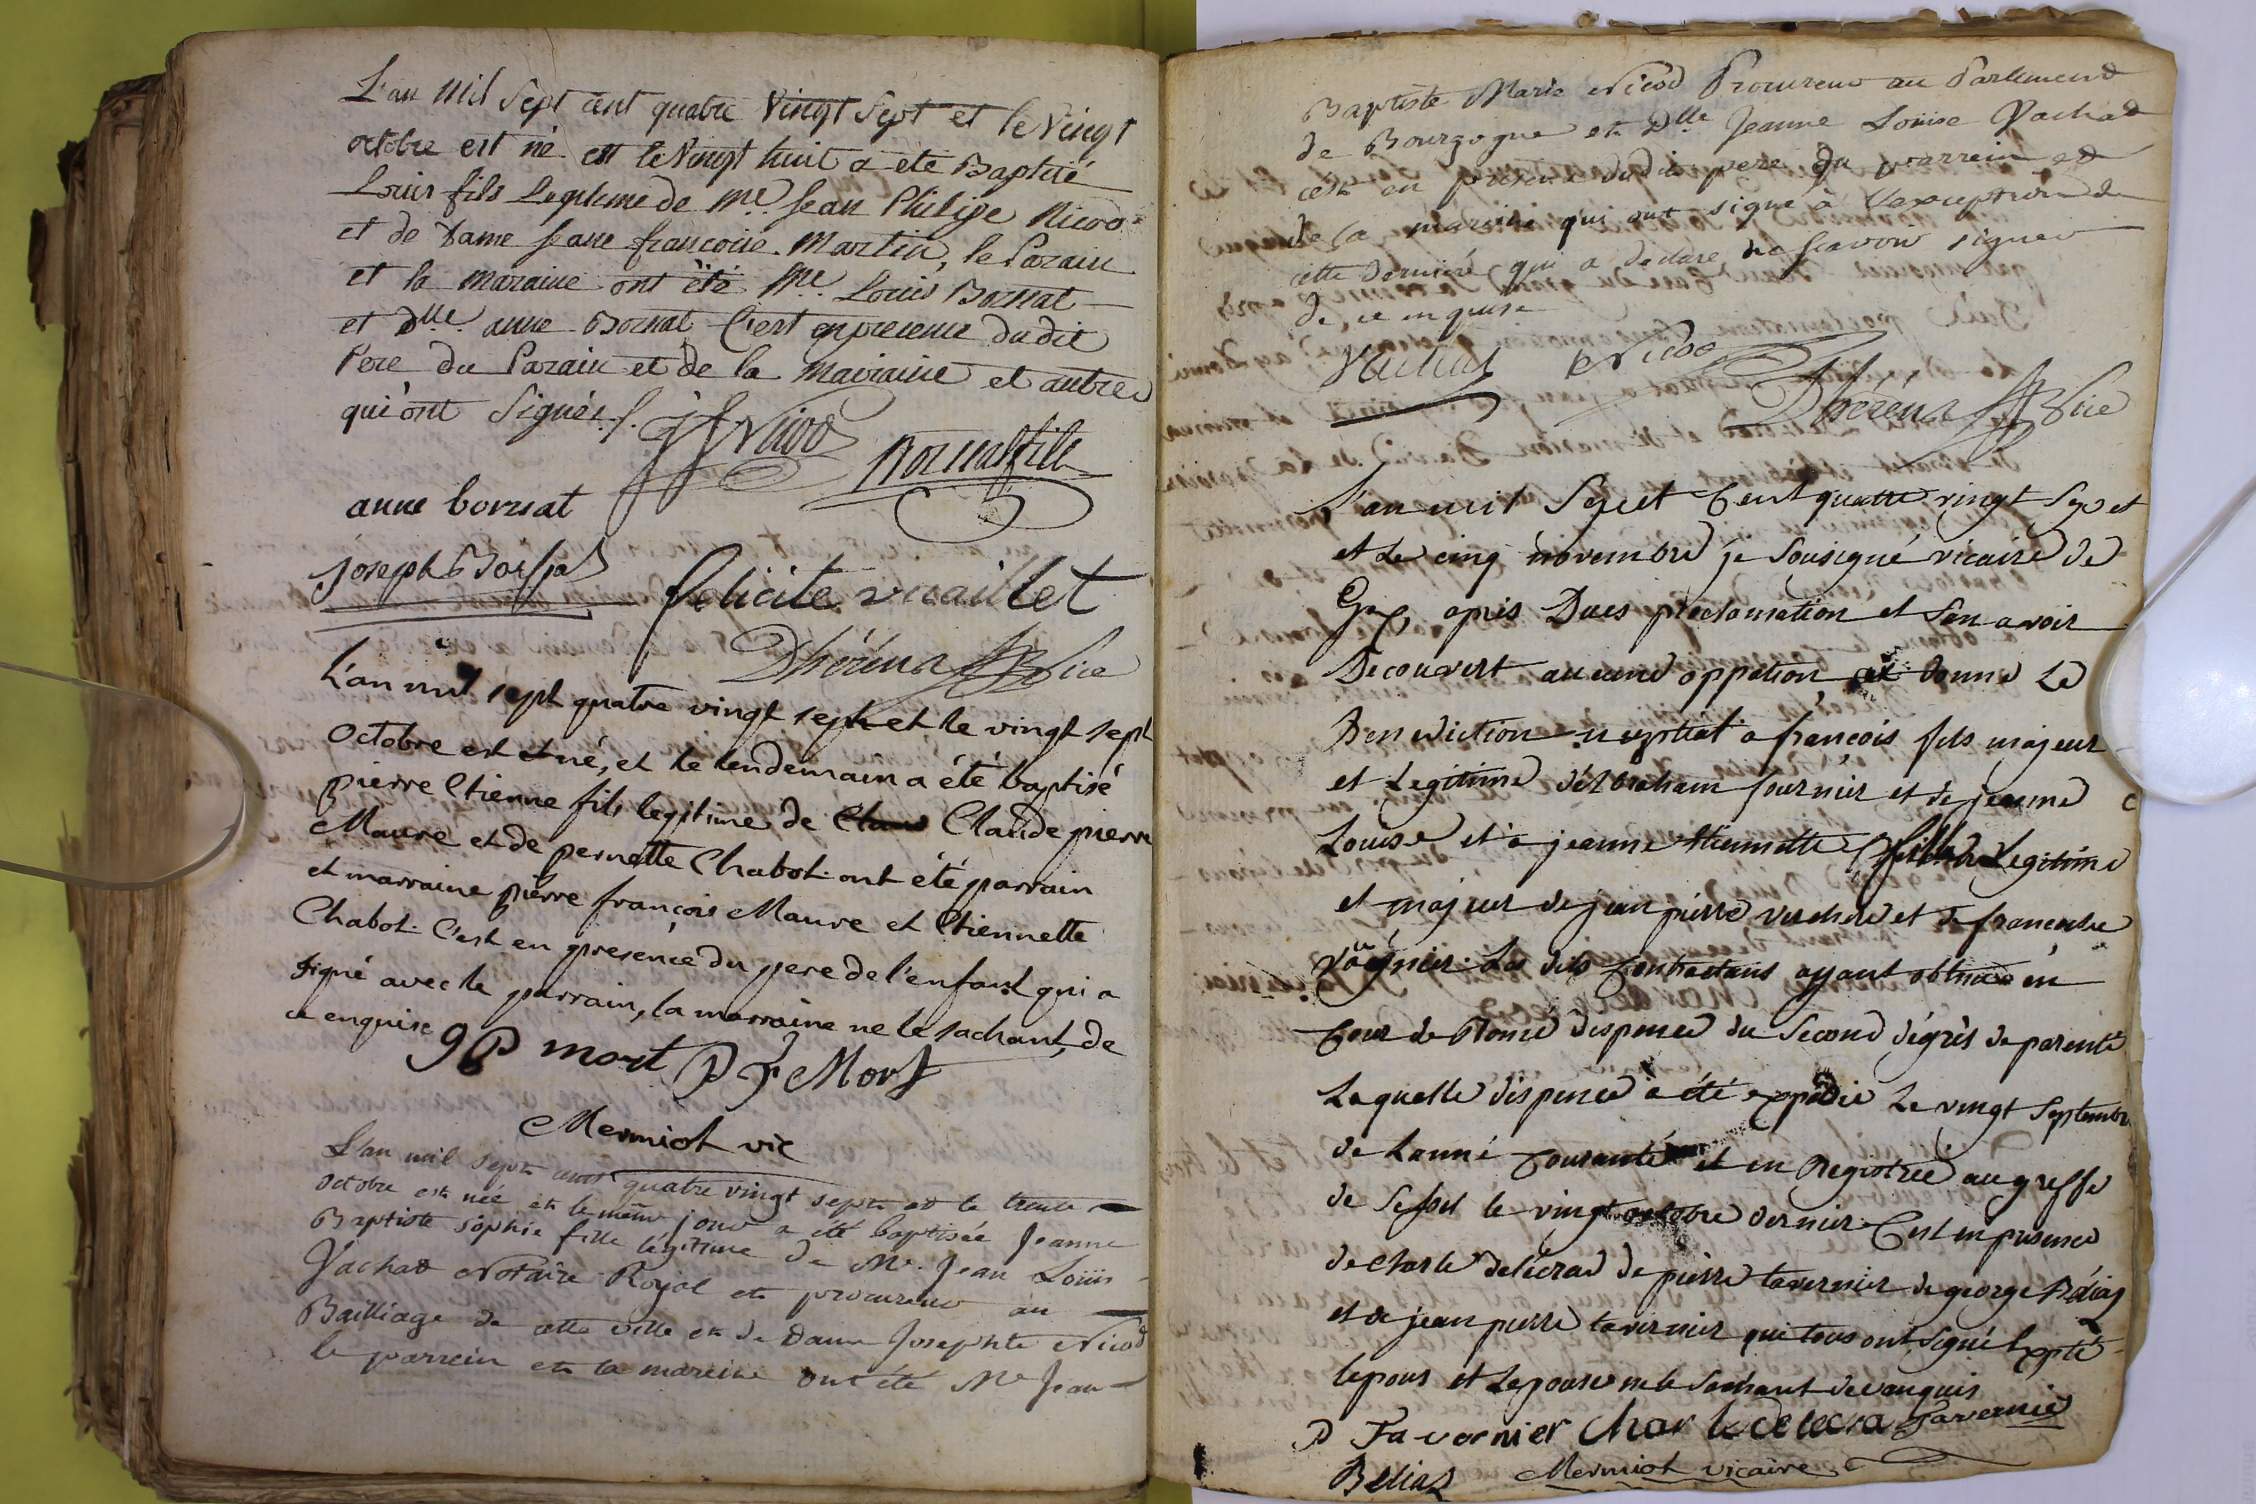 L'an mil Sept cent quatre Vingt Sept et le Vingt
octobre est né est le Vingt huit a eté Baptisé
Louis fils Legiteme de Me. Jean Philipe Nicod
et de dame Jeane francoise Martin, le Parain
et la maraine ont été Me. Louis Bornat
et Dlle. anne Bornat C'est en presence dudit
Pere du Parain et de la Mairaine et autres
qui ont Signés ./.
JP Nicod
Bornat fils
anne bornat
Joseph
felicite vuaillet
Vice
L'an mil sept quatre vingt sept et le vingt sept
octobre est et né, et le lendemain a été baptisé
pierre Etienne fils legitime de Claude pierre
Maure et de pernette Chabot. ont été parrain
et marraine pierre françois Maure et Etiennette
Chabot. C'est en presence du pere de l'enfant qui a
signé avec le parrain, la marraine ne le sachant, de
ce enquise
mort P F Mort
Mermiot vic
L'an mil sept cent quatre vingt sept et le trente
octobre est née et le même jour a été baptisée Jeanne
Baptiste Sophie fille légitime de Me. Jean Loüis
Vachat Notaire Royal et procureur au
Bailliage de cette ville et de Dame Josephte Nicod
le parrein et la mareine ont été Me Jean
Baptiste Marie Nicod Procureur au Parlement
de Bourgogne et Dlle Jeanne Loüise Vachat
cest en presence dudit pere du parrein et
de la mareine qui ont signé à l'exception de
cette derniere qui a declaré ne scavoir signer
de ce enquise
Vachat Nicod
Vice
L'an mil Sept Cent quatre vingt Sept
et Le cinq novembre je Sousigné vicaire de
Gex apris Dues proclamation et S'en avoir
Decouvert aucune oppotion ai donné La
Benediction nuptial a françois fils majeur
et Legitime d'Abraham fournier et de jeanne
Louise et a jeanne Etiennette fille Legitime
et majeur de jean pierre et de francoise
Les dits Contractans ayant obtenu en
Cour de Rome dispense du Second dégrés de parenté
Laquelle dispense a été expedié Le vingt Septembre
de Lanné Courante et en Registrée au greffe
de le vingt octobre dernier C'est en presence
de Charle de pierre tavernier de george Belias
et de jean pierre tavernier qui tous ont Signé Excepté
lepous et Lepouse ne le Sachant de ce enquis
P Tavernier Charle delecra Tavernié
Belias Mermiot vicaire